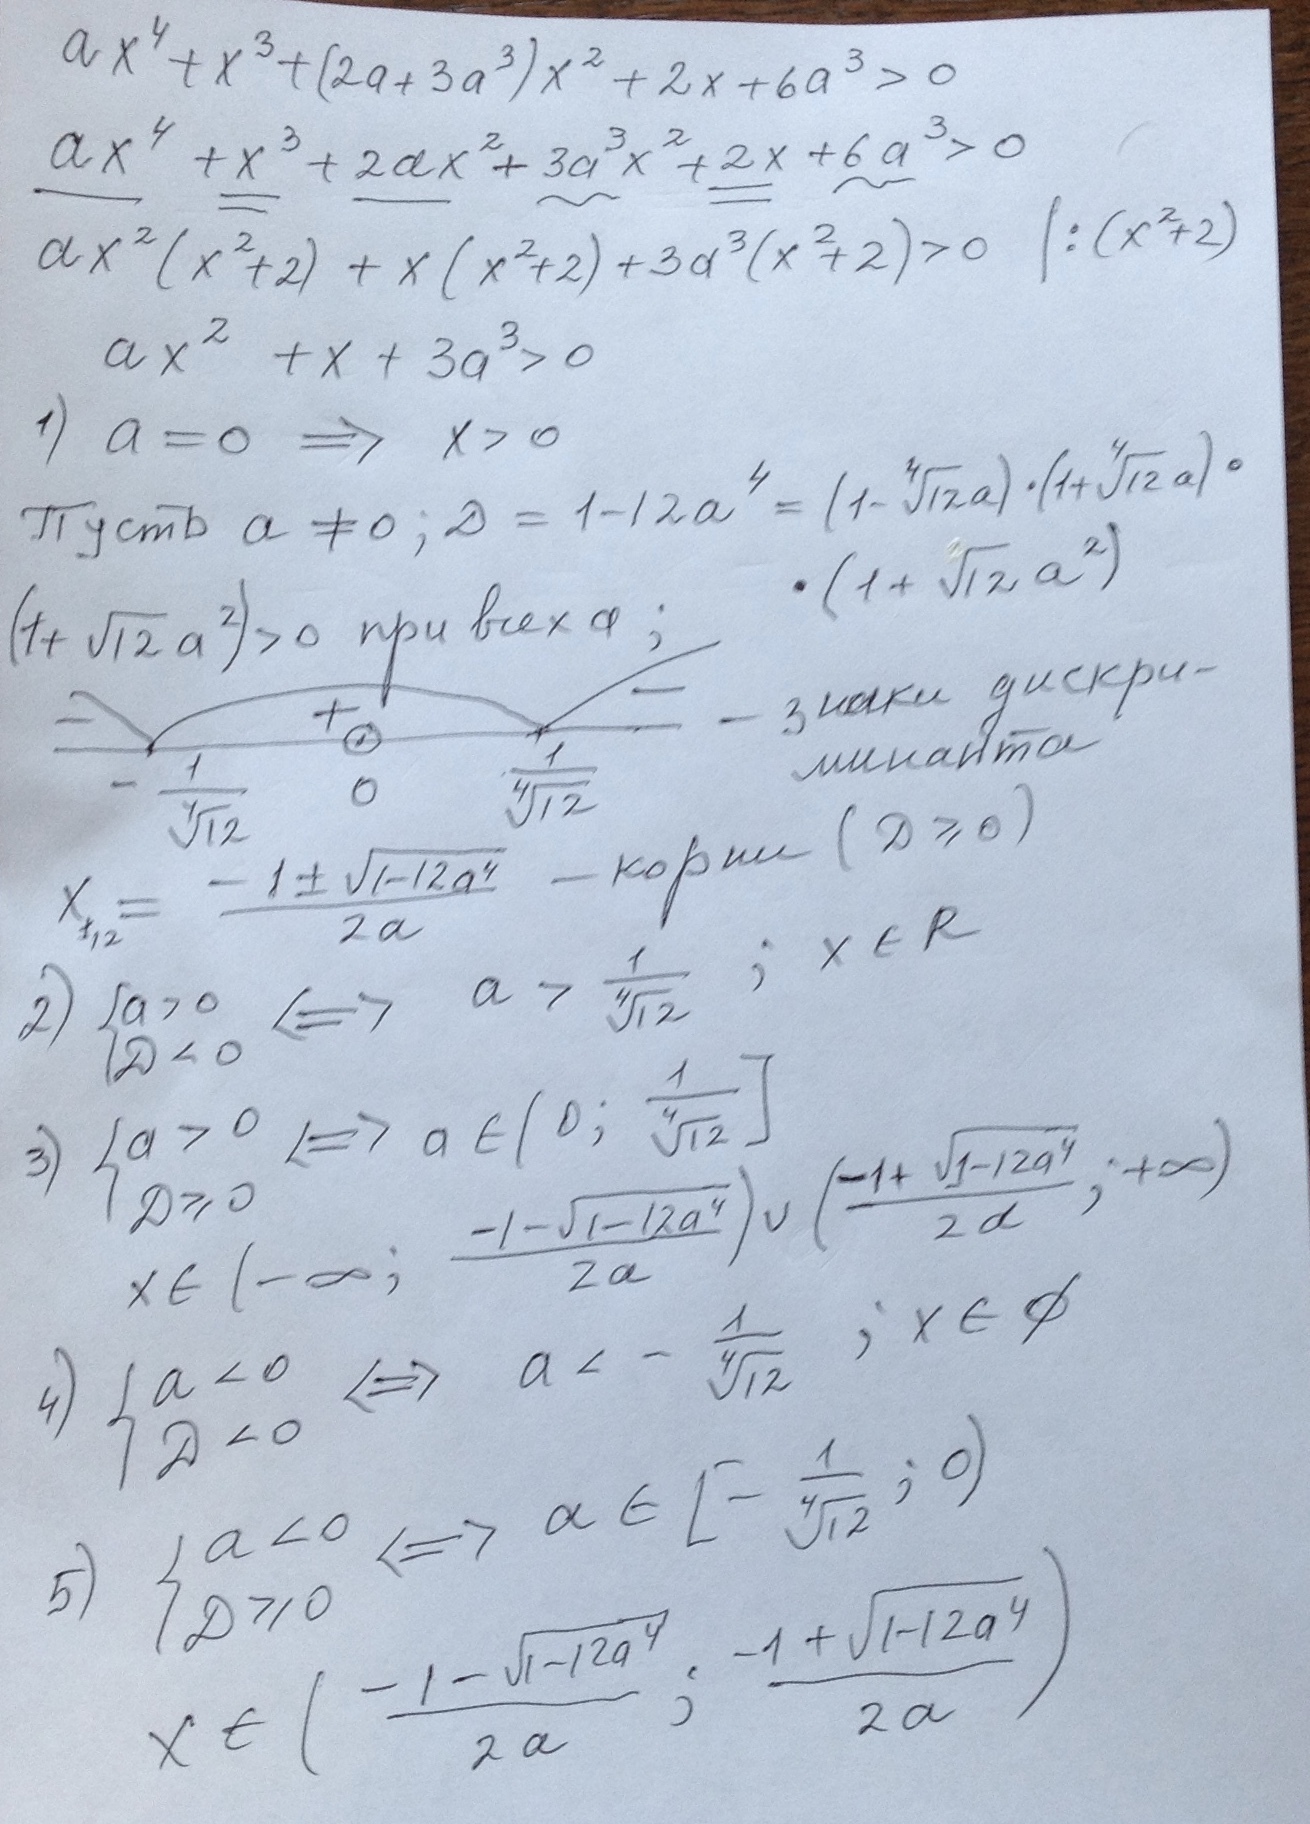 ax⁴ + x³ + (2a + 3a³)x² + 2x + 6a³ > 0
ax⁴ + x³ + 2ax² + 3a³x² + 2x + 6a³ > 0
ax²(x² + 2) + x(x² + 2) + 3a³(x² + 2) > 0 | : (x² + 2)
ax² + x + 3a³ > 0
1) a = 0 ⟹ x > 0
Пусть a ≠ 0; D = 1 - 12a⁴ = (1 - ⁴√12 a) · (1 + ⁴√12 a) ·
· (1 + √12 a²)
(1 + √12 a²) > 0 при всех a;
- + - — знаки дискри-
минанта
-1/⁴√12 0 1/⁴√12
x₁,₂ = (-1 ± √(1-12a⁴))/2a — корни (D ≥ 0)
2) { a > 0 D < 0 ⟺ a > 1/⁴√12 ; x ∈ R
3) { a > 0 D ≥ 0 ⟺ a ∈ (0; 1/⁴√12]
x ∈ (-∞; (-1-√(1-12a⁴))/2a) ∪ ((-1+√(1-12a⁴))/2a; +∞)
4) { a < 0 D < 0 ⟺ a < -1/⁴√12 ; x ∈ ∅
5) { a < 0 D ≥ 0 ⟺ a ∈ [-1/⁴√12 ; 0)
x ∈ ((-1-√(1-12a⁴))/2a ; (-1+√(1-12a⁴))/2a)